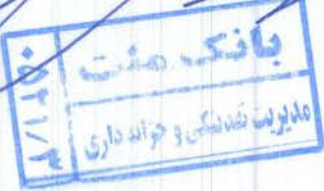 بانک صنعت
مدیریت نقدینگی و خزانه داری